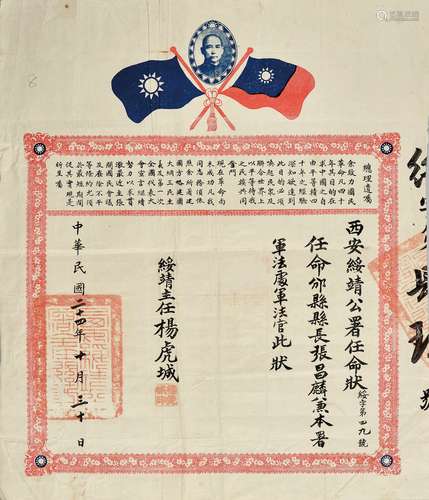 總理遺囑
余致力國民
革命凡四十
年其目的在
求中國之自
由平等積四
十年之經驗
深知欲達到
此目的必須
喚起民眾及
聯合世界上
以平等待我
之民族共同
奮鬥
現在革命尚
未成功凡我
同志務須依
照余所著建
國方略建國
大綱三民主
義及第一次
全國代表大
會宣言繼續
努力以求貫
澈最近主張
開國民會議
及廢除不平
等條約尤須
於最短期間
促其實現是
所至囑
西安綏靖公署任命狀 綏字第四九號
任命邠縣縣長張昌麟兼本署
軍法處軍法官此狀
綏靖主任楊虎城
中華民國二十四年十月三十日